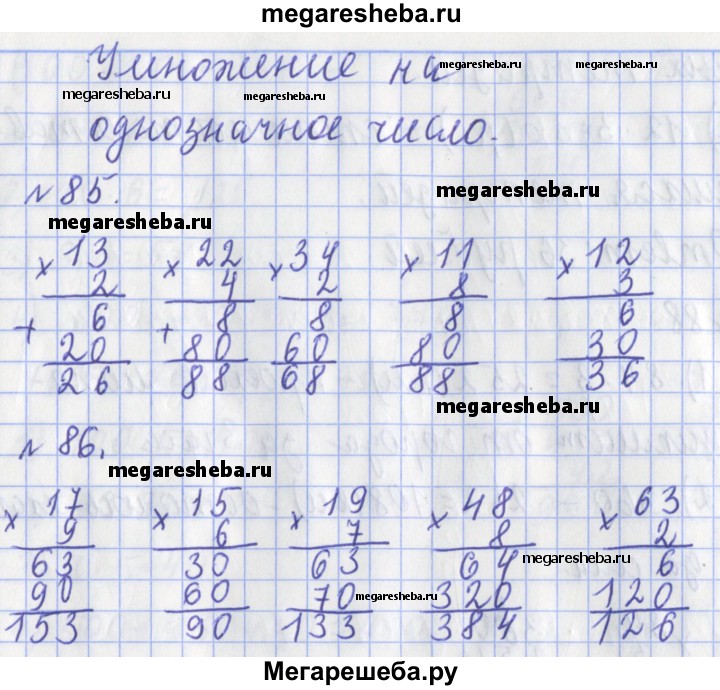 megaresheba.ru
Умножение на megaresheba.ru
megaresheba.ru megaresheba.ru
однозначное число.
№ 85. megaresheba.ru
megaresheba.ru
× 13 × 22 × 34 × 11 × 12
2 4 2 8 3
+ 6 + 8 8 8 6
20 80 60 80 30
26 88 68 88 36
megaresheba.ru
№ 86.
megaresheba.ru
× 17 × 15 × 19 × 48 × 63
9 6 7 8 2
63 30 63 64 megaresheba.ru 6
90 60 70 megaresheba.ru 320 120
153 90 133 384 126
Мегарешеба.ру